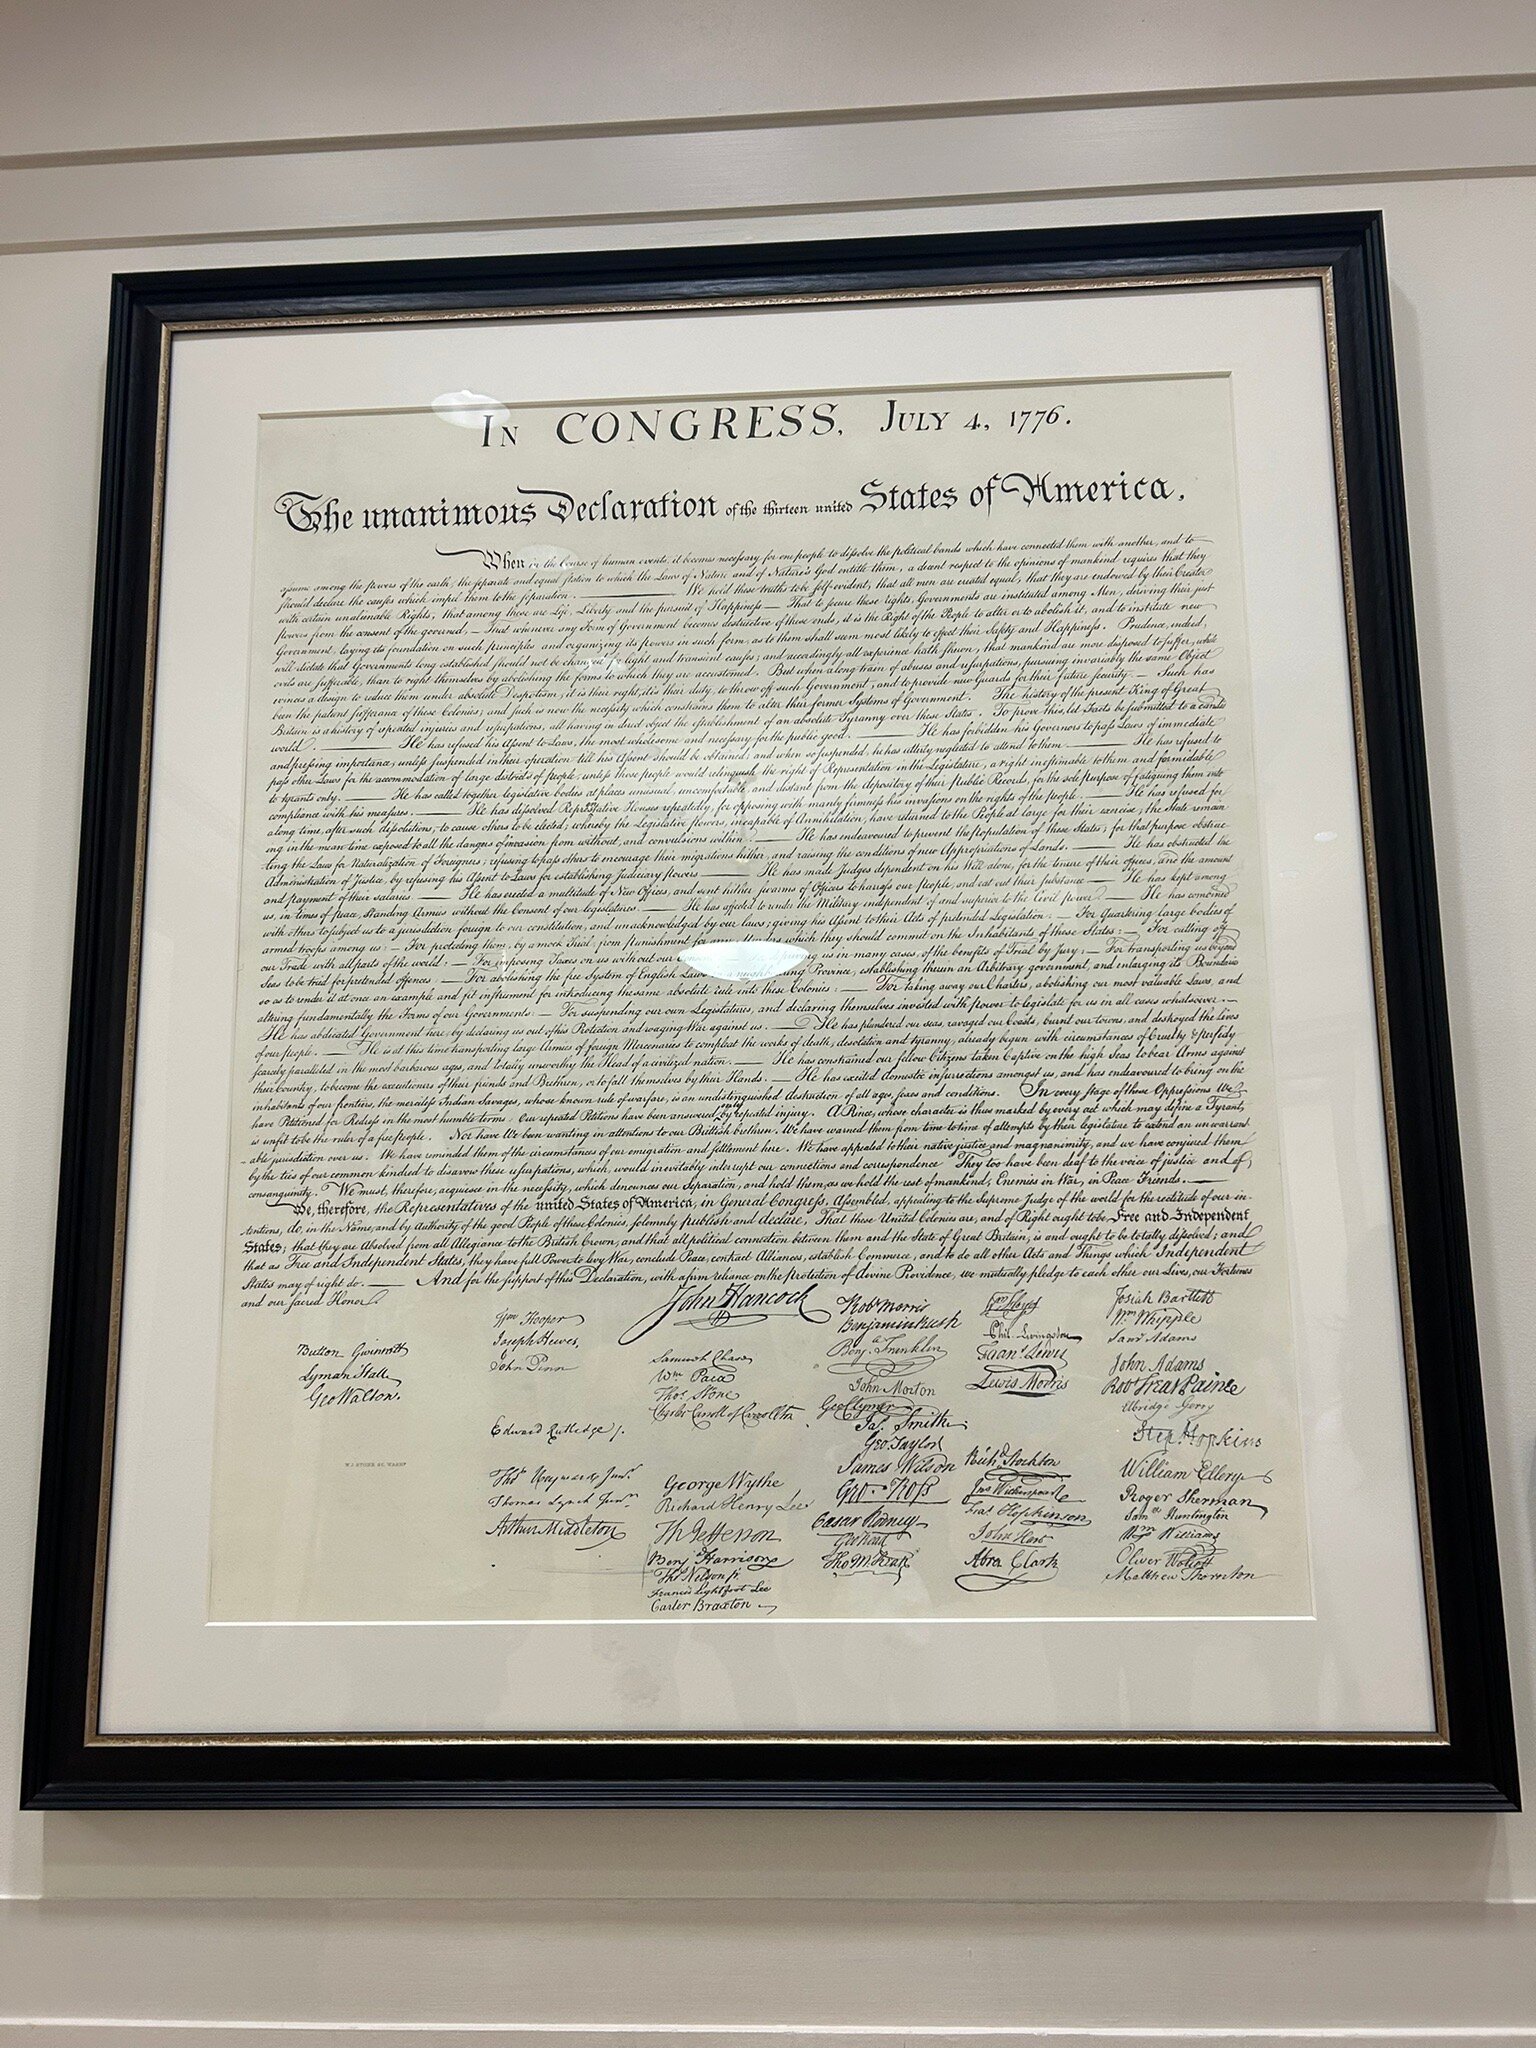 In CONGRESS, July 4, 1776.
The unanimous Declaration of the thirteen united States of America.
When in the Course of human events, it becomes necessary for one people to dissolve the political bands which have connected them with another, and to
assume among the powers of the earth, the separate and equal station to which the Laws of Nature and of Nature's God entitle them, a decent respect to the opinions of mankind requires that they
should declare the causes which impel them to the separation. ——— We hold these truths to be self-evident, that all men are created equal, that they are endowed by their Creator
with certain unalienable Rights, that among these are Life, Liberty and the pursuit of Happiness — That to secure these rights, Governments are instituted among Men, deriving their just
powers from the consent of the governed, — That whenever any Form of Government becomes destructive of these ends, it is the Right of the People to alter or to abolish it, and to institute new
Government, laying its foundation on such principles and organizing its powers in such form, as to them shall seem most likely to effect their Safety and Happiness. Prudence, indeed,
will dictate that Governments long established should not be changed for light and transient causes; and accordingly all experience hath shewn, that mankind are more disposed to suffer, while
evils are sufferable, than to right themselves by abolishing the forms to which they are accustomed. But when a long train of abuses and usurpations, pursuing invariably the same Object
evinces a design to reduce them under absolute Despotism, it is their right, it is their duty, to throw off such Government, and to provide new Guards for their future security. — Such has
been the patient sufferance of these Colonies; and such is now the necessity which constrains them to alter their former Systems of Government. The history of the present King of Great
Britain is a history of repeated injuries and usurpations, all having in direct object the establishment of an absolute Tyranny over these States. To prove this, let Facts be submitted to a candid
world. ——— He has refused his Assent to Laws, the most wholesome and necessary for the public good. ——— He has forbidden his Governors to pass Laws of immediate
and pressing importance, unless suspended in their operation till his Assent should be obtained; and when so suspended, he has utterly neglected to attend to them. ——— He has refused to
pass other Laws for the accommodation of large districts of people, unless those people would relinquish the right of Representation in the Legislature, a right inestimable to them and formidable
to tyrants only. ——— He has called together legislative bodies at places unusual, uncomfortable, and distant from the depository of their Public Records, for the sole purpose of fatiguing them into
compliance with his measures. ——— He has dissolved Representative Houses repeatedly, for opposing with manly firmness his invasions on the rights of the people. ——— He has refused for
a long time, after such dissolutions, to cause others to be elected; whereby the Legislative powers, incapable of Annihilation, have returned to the People at large for their exercise; the State remain
ing in the mean time exposed to all the dangers of invasion from without, and convulsions within. ——— He has endeavoured to prevent the population of these States; for that purpose obstruc
ting the Laws for Naturalization of Foreigners; refusing to pass others to encourage their migrations hither, and raising the conditions of new Appropriations of Lands. ——— He has obstructed the
Administration of Justice, by refusing his Assent to Laws for establishing Judiciary powers ——— He has made Judges dependent on his Will alone, for the tenure of their offices, and the amount
and payment of their salaries. ——— He has erected a multitude of New Offices, and sent hither swarms of Officers to harrass our people, and eat out their substance ——— He has kept among
us, in times of peace, Standing Armies without the Consent of our legislatures. ——— He has affected to render the Military independent of and superior to the Civil power. ——— He has combined
with others to subject us to a jurisdiction foreign to our constitution, and unacknowledged by our laws; giving his Assent to their Acts of pretended Legislation: — For Quartering large bodies of
armed troops among us: — For protecting them, by a mock Trial, from punishment for any Murders which they should commit on the Inhabitants of these States: — For cutting off
our Trade with all parts of the world: — For imposing Taxes on us without our — For depriving us in many cases, of the benefits of Trial by Jury: — For transporting us beyond
Seas to be tried for pretended offences: — For abolishing the free System of English Laws in a neighbouring Province, establishing therein an Arbitrary government, and enlarging its Boundaries
so as to render it at once an example and fit instrument for introducing the same absolute rule into these Colonies: — For taking away our Charters, abolishing our most valuable Laws, and
altering fundamentally the Forms of our Governments: — For suspending our own Legislatures, and declaring themselves invested with power to legislate for us in all cases whatsoever. —
He has abdicated Government here, by declaring us out of his Protection and waging War against us. ——— He has plundered our seas, ravaged our Coasts, burnt our towns, and destroyed the lives
of our people. ——— He is at this time transporting large Armies of foreign Mercenaries to compleat the works of death, desolation and tyranny, already begun with circumstances of Cruelty & perfidy
scarcely paralleled in the most barbarous ages, and totally unworthy the Head of a civilized nation. ——— He has constrained our fellow Citizens taken Captive on the high Seas to bear Arms against
their Country, to become the executioners of their friends and Brethren, or to fall themselves by their Hands. ——— He has excited domestic insurrections amongst us, and has endeavoured to bring on the
inhabitants of our frontiers, the merciless Indian Savages, whose known rule of warfare, is an undistinguished destruction of all ages, sexes and conditions. In every stage of these Oppressions We
have Petitioned for Redress in the most humble terms: Our repeated Petitions have been answered only by repeated injury. A Prince, whose character is thus marked by every act which may define a Tyrant,
is unfit to be the ruler of a free people. Nor have We been wanting in attentions to our Brittish brethren. We have warned them from time to time of attempts by their legislature to extend an unwarrant
able jurisdiction over us. We have reminded them of the circumstances of our emigration and settlement here. We have appealed to their native justice and magnanimity, and we have conjured them
by the ties of our common kindred to disavow these usurpations, which, would inevitably interrupt our connections and correspondence They too have been deaf to the voice of justice and of
consanguinity. We must, therefore, acquiesce in the necessity, which denounces our Separation, and hold them, as we hold the rest of mankind, Enemies in War, in Peace Friends. ———
We, therefore, the Representatives of the united States of America, in General Congress, Assembled, appealing to the Supreme Judge of the world for the rectitude of our in-
tentions, do, in the Name, and by Authority of the good People of these Colonies, solemnly publish and declare, That these United Colonies are, and of Right ought to be Free and Independent
States; that they are Absolved from all Allegiance to the British Crown, and that all political connection between them and the State of Great Britain, is and ought to be totally dissolved; and
that as Free and Independent States, they have full Power to levy War, conclude Peace, contract Alliances, establish Commerce, and to do all other Acts and Things which Independent
States may of right do. ——— And for the support of this Declaration, with a firm reliance on the protection of divine Providence, we mutually pledge to each other our Lives, our Fortunes
and our sacred Honor.
Button Gwinnett
Lyman Hall
Geo Walton.
Wm Hooper
Joseph Hewes,
John Penn
Edward Rutledge /.
Thos Heyward Junr.
Thomas Lynch Junr.
Arthur Middleton
W.J. STONE SC. WASHN.
John Hancock
Samuel Chase
Wm Paca
Thos Stone
Charles Carroll of Carrollton
George Wythe
Richard Henry Lee
Th Jefferson
Benj Harrison
Thos Nelson jr.
Francis Lightfoot Lee
Carter Braxton
Robt Morris
Benjamin Rush
Benja Franklin
John Morton
Geo Clymer
Jas. Smith
Geo. Taylor
James Wilson
Geo. Ross
Caesar Rodney
Geo Read
Tho M:Kean
Wm Floyd
Phil. Livingston
Frans. Lewis
Lewis Morris
Richd. Stockton
Jno Witherspoon
Fras. Hopkinson
John Hart
Abra Clark
Josiah Bartlett
Wm. Whipple
Saml Adams
John Adams
Robt Treat Paine
Elbridge Gerry
Step. Hopkins
William Ellery
Roger Sherman
Saml Huntington
Wm Williams
Oliver Wolcott
Matthew Thornton